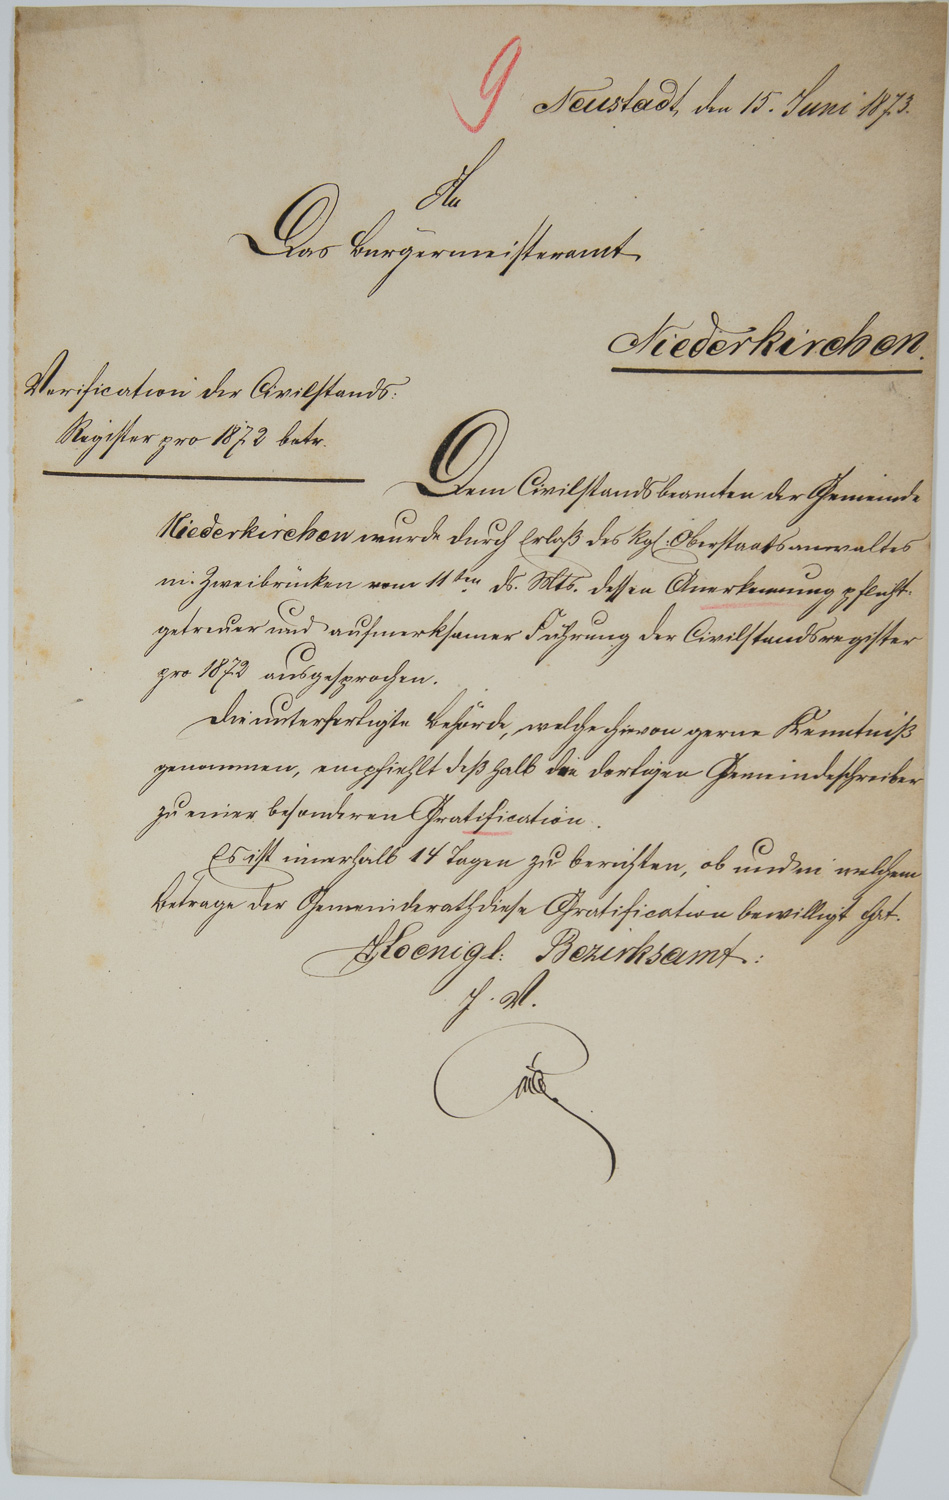 9
Neustadt, den 15. Juni 1873.
An
Das Bürgermeisteramt
Niederkirchen.
Verification der Civilstands-
Register pro 1872 betr.
Dem Civilstandsbeamten der Gemeinde
Niederkirchen wurde durch Erlaß des kgl. Oberstaatsanwaltes
in Zweibrücken vom 11ten ds. Mts. dessen Anerkennung pflicht-
getreuer und aufmerksamer Führung der Civilstandsregister
pro 1872 ausgesprochen.
Die unterfertigte Behörde, welche hievon gerne Kenntniß
genommen, empfiehlt deßhalb den dortigen Gemeindeschreiber
zu einer besonderen Gratification.
Es ist innerhalb 14 Tagen zu berichten, ob und in welchem
Betrage der Gemeinderath diese Gratification bewilligt hat.
Koenigl. Bezirksamt:
J. V.